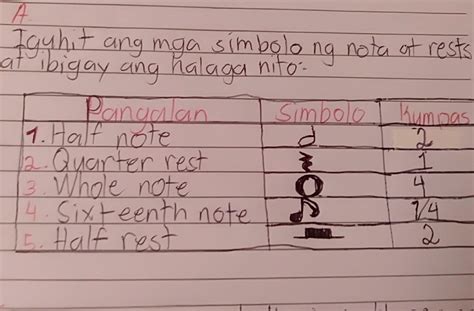 A
Iguhit ang mga simbolo ng nota at rests
at ibigay ang halaga nito:-
Pangalan Simbolo Kumpas
1. Half note 2
2. Quarter rest 1
3. Whole note 4
4. Sixteenth note 1/4
5. Half rest 2